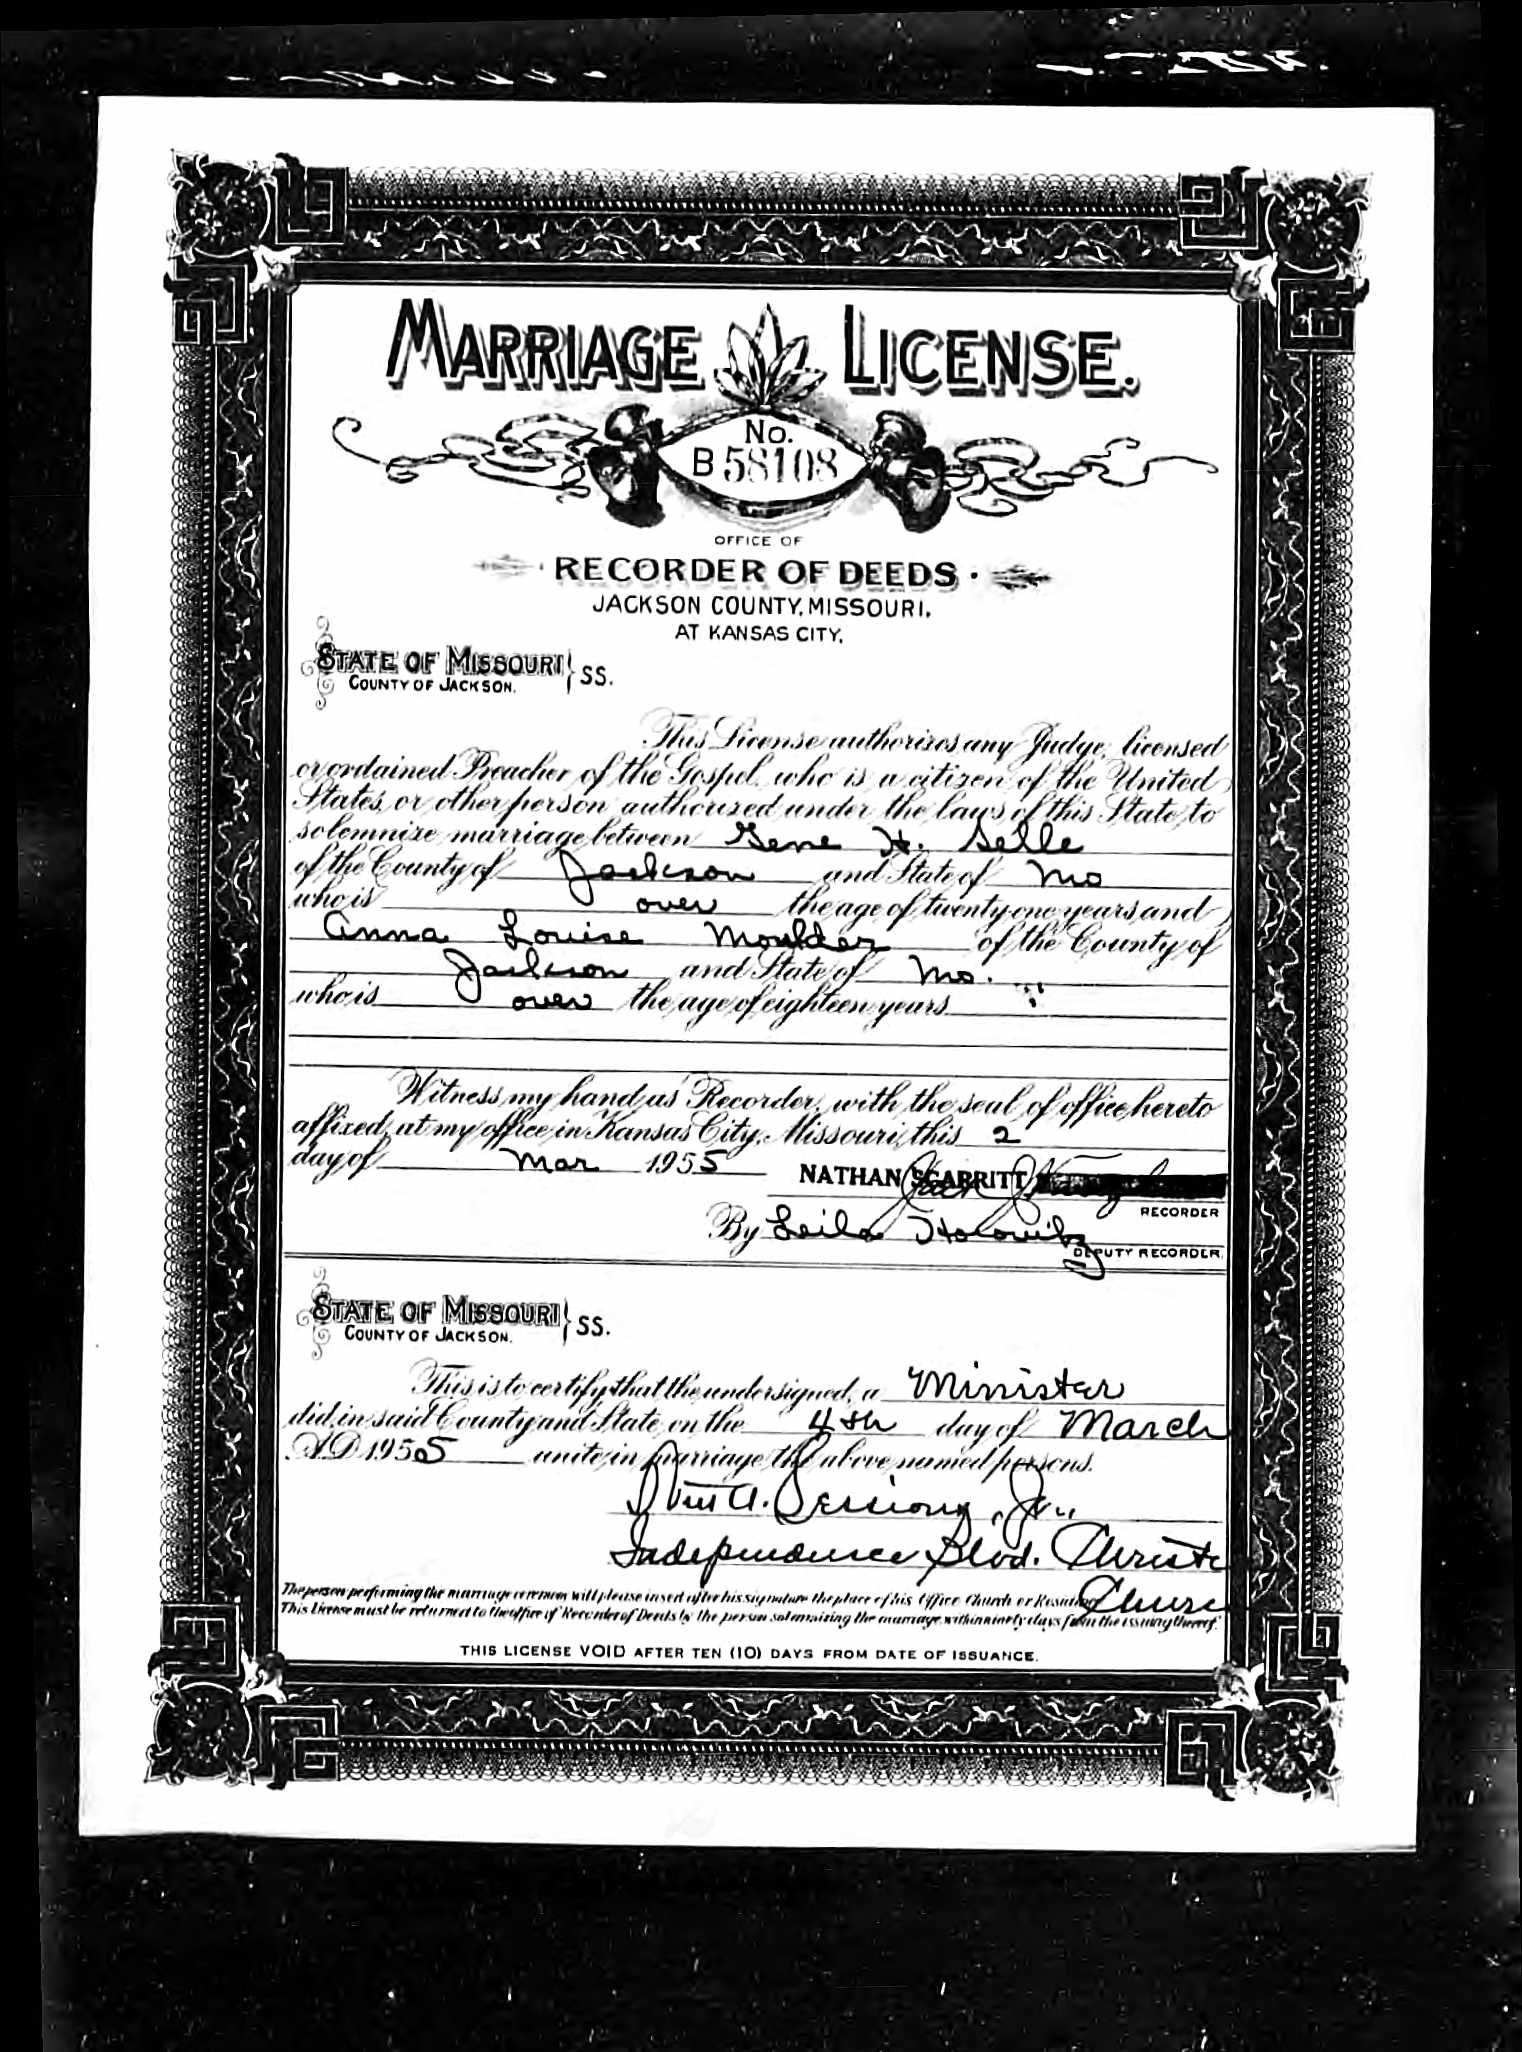 MARRIAGE LICENSE.
No.
B 58108
OFFICE OF
RECORDER OF DEEDS
JACKSON COUNTY, MISSOURI.
AT KANSAS CITY.
STATE OF MISSOURI
COUNTY OF JACKSON. } SS.
This License authorizes any Judge, licensed
or ordained Preacher of the Gospel, who is a citizen of the United
States, or other person authorized under the laws of this State, to
solemnize marriage between Gene H. Selle
of the County of Jackson and State of Mo
who is over the age of twenty-one years and
Anna Louise Moulder of the County of
Jackson and State of Mo.
who is over the age of eighteen years
Witness my hand as Recorder, with the seal of office hereto
affixed, at my office in Kansas City, Missouri, this 2
day of Mar 1955 NATHAN SCARRITT
RECORDER
By Leila Holowitz
DEPUTY RECORDER.
STATE OF MISSOURI
COUNTY OF JACKSON. } SS.
This is to certify that the undersigned, a Minister
did, in said County and State, on the 4th day of March
A.D. 1955 unite in marriage the above named persons.
A. Sessions, Jr.,
Independence Blvd. Christ
Churc
The person performing the marriage ceremony will please insert after his signature the place of his Office Church or Residence
This License must be returned to the office of Recorder of Deeds by the person solemnizing the marriage, within ninety days from the issuing thereof.
THIS LICENSE VOID AFTER TEN (10) DAYS FROM DATE OF ISSUANCE.